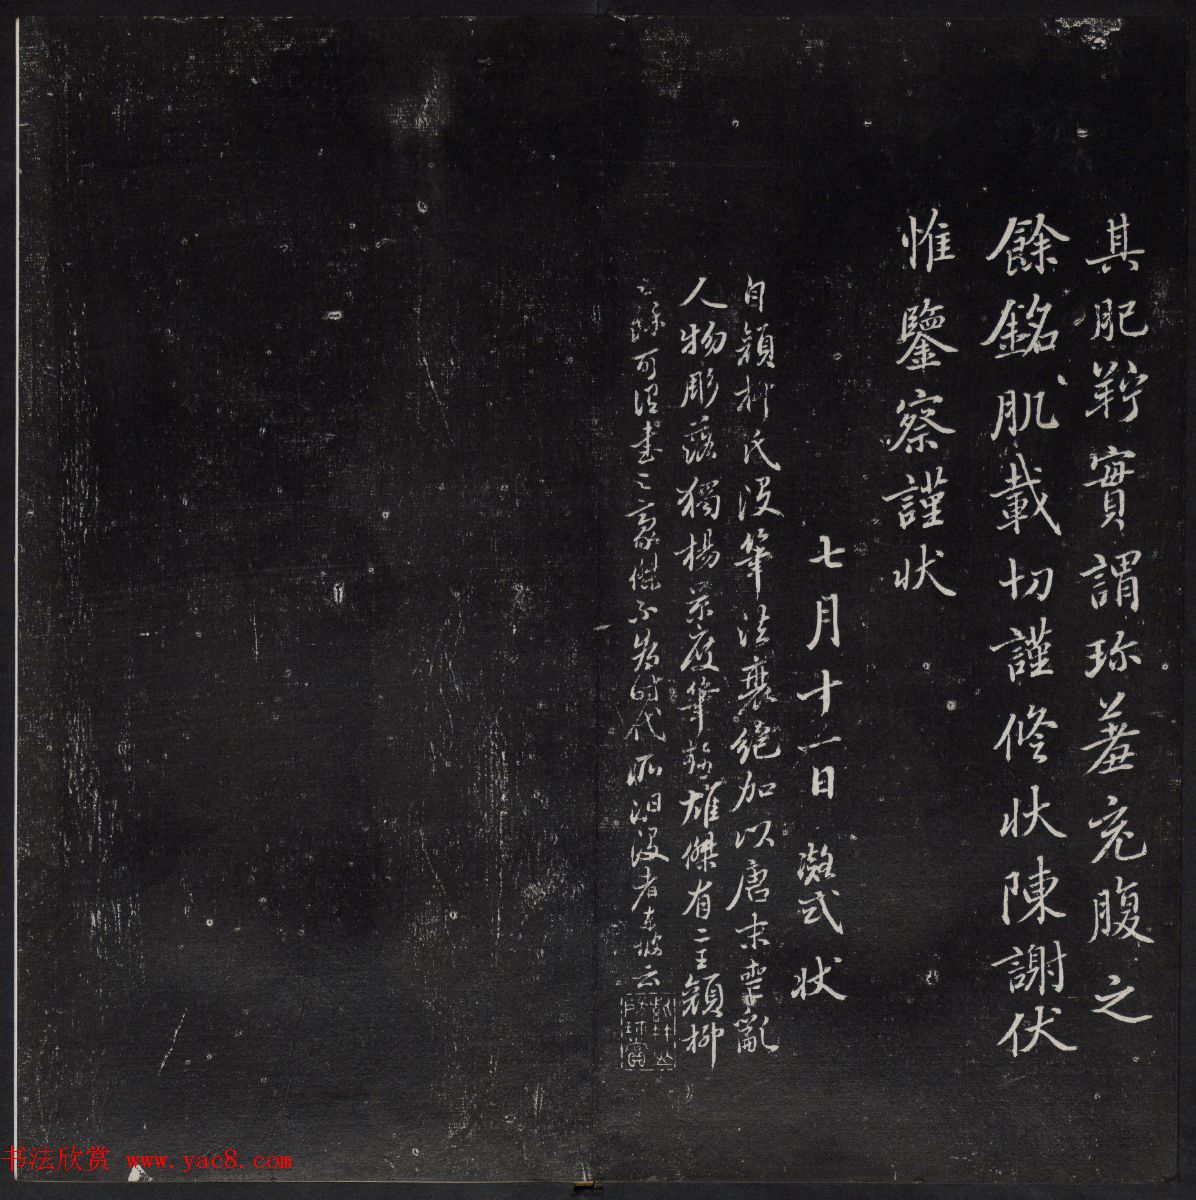 其肥羜實謂珍羞充腹之
餘銘肌載切謹修狀陳謝伏
惟鑒察謹狀
七月十一日 凝式 狀
自顏柳氏沒筆法衰絕加以唐末喪亂
人物彫落獨楊景度筆勢雄傑有二王顏柳
之餘可謂書之豪傑不為時代所汩沒者東坡云
书法欣赏 www.yac8.com